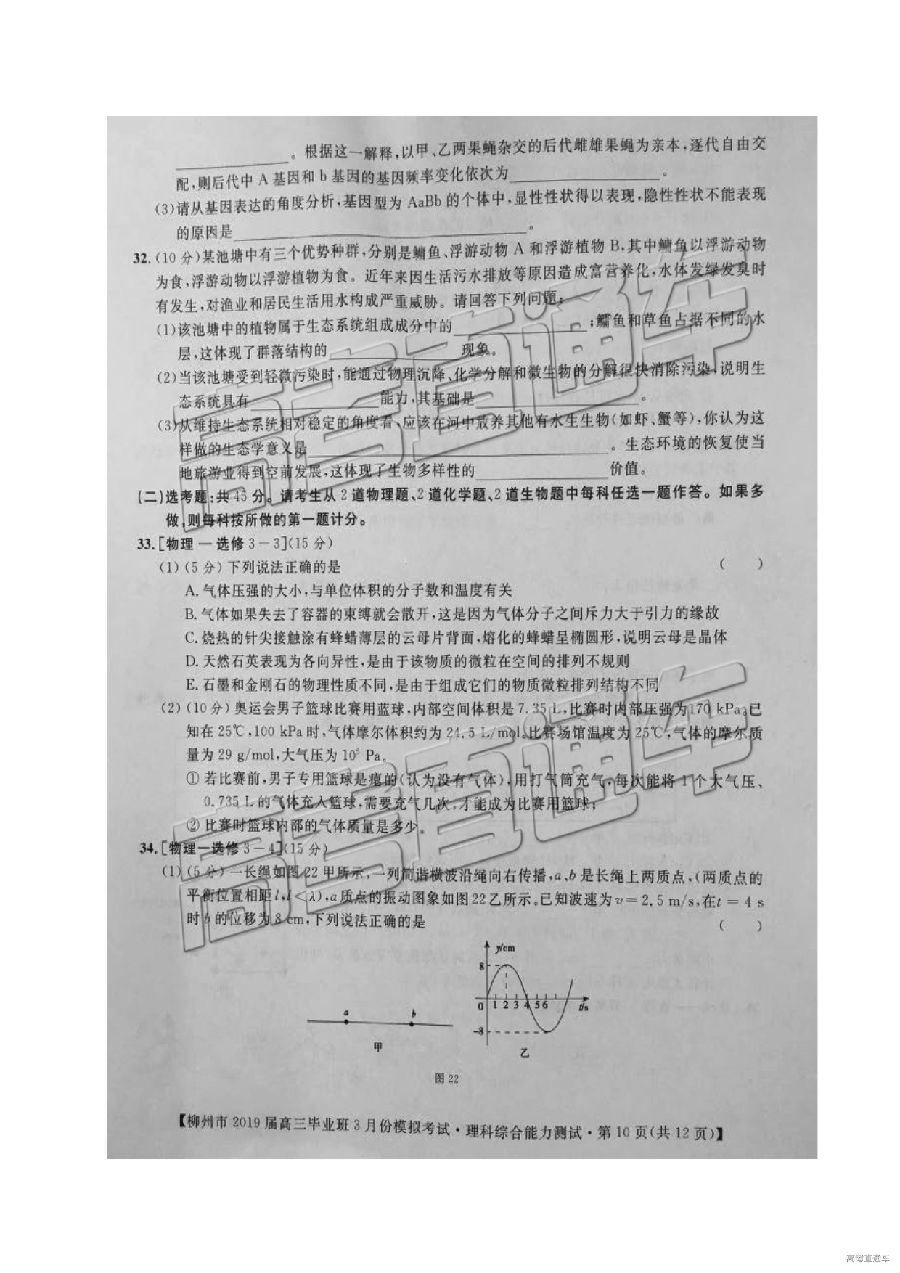 ____________。根据这一解释,以甲、乙两果蝇杂交的后代雌雄果蝇为亲本,逐代自由交
配,则后代中 A 基因和 b 基因的基因频率变化依次为____________。
(3)请从基因表达的角度分析,基因型为 AaBb 的个体中,显性性状得以表现,隐性性状不能表现
的原因是____________。
32.(10 分)某池塘中有三个优势种群,分别是鳙鱼、浮游动物 A 和浮游植物 B,其中鳙鱼以浮游动物
为食,浮游动物以浮游植物为食。近年来因生活污水排放等原因造成富营养化,水体发绿发臭时
有发生,对渔业和居民生活用水构成严重威胁。请回答下列问题:
(1)该池塘中的植物属于生态系统组成成分中的____________;鳙鱼和草鱼占据不同的水
层,这体现了群落结构的____________现象。
(2)当该池塘受到轻微污染时,能通过物理沉降、化学分解和微生物的分解很快消除污染,说明生
态系统具有____________能力,其基础是____________。
(3)从维持生态系统相对稳定的角度看,应该在河中放养其他有水生生物(如虾、蟹等),你认为这
样做的生态学意义是____________。生态环境的恢复使当
地旅游业得到空前发展,这体现了生物多样性的____________价值。
(二)选考题:共 45 分。请考生从 2 道物理题、2 道化学题、2 道生物题中每科任选一题作答。如果多
做,则每科按所做的第一题计分。
33.[物理—选修 3-3](15 分)
(1)(5 分)下列说法正确的是 ( )
A. 气体压强的大小,与单位体积的分子数和温度有关
B. 气体如果失去了容器的束缚就会散开,这是因为气体分子之间斥力大于引力的缘故
C. 烧热的针尖接触涂有蜂蜡薄层的云母片背面,熔化的蜂蜡呈椭圆形,说明云母是晶体
D. 天然石英表现为各向异性,是由于该物质的微粒在空间的排列不规则
E. 石墨和金刚石的物理性质不同,是由于组成它们的物质微粒排列结构不同
(2)(10 分)奥运会男子篮球比赛用蓝球,内部空间体积是 7.35 L,比赛时内部压强为 170 kPa,已
知在 25℃,100 kPa 时,气体摩尔体积约为 24.5 L/mol,比赛场馆温度为 25℃,气体的摩尔质
量为 29 g/mol,大气压为 10⁵ Pa。
① 若比赛前,男子专用篮球是瘪的(认为没有气体),用打气筒充气,每次能将 1 个大气压、
0.735 L 的气体充入篮球,需要充气几次,才能成为比赛用篮球;
② 比赛时篮球内部的气体质量是多少。
34.[物理—选修 3-4](15 分)
(1)(5 分)一长绳如图 22 甲所示,一列简谐横波沿绳向右传播,a、b 是长绳上两质点,(两质点的
平衡位置相距 l,l<λ),a 质点的振动图象如图 22 乙所示。已知波速为 v=2.5 m/s,在 t=4 s
时 b 的位移为 8 cm,下列说法正确的是 ( )
y/cm
8
0 1 2 3 4 5 6 t/s
-8
a b
甲 乙
图 22
【柳州市 2019 届高三毕业班 3 月份模拟考试·理科综合能力测试·第 10 页(共 12 页)】
高考直通车
高考直通车
高考直通车